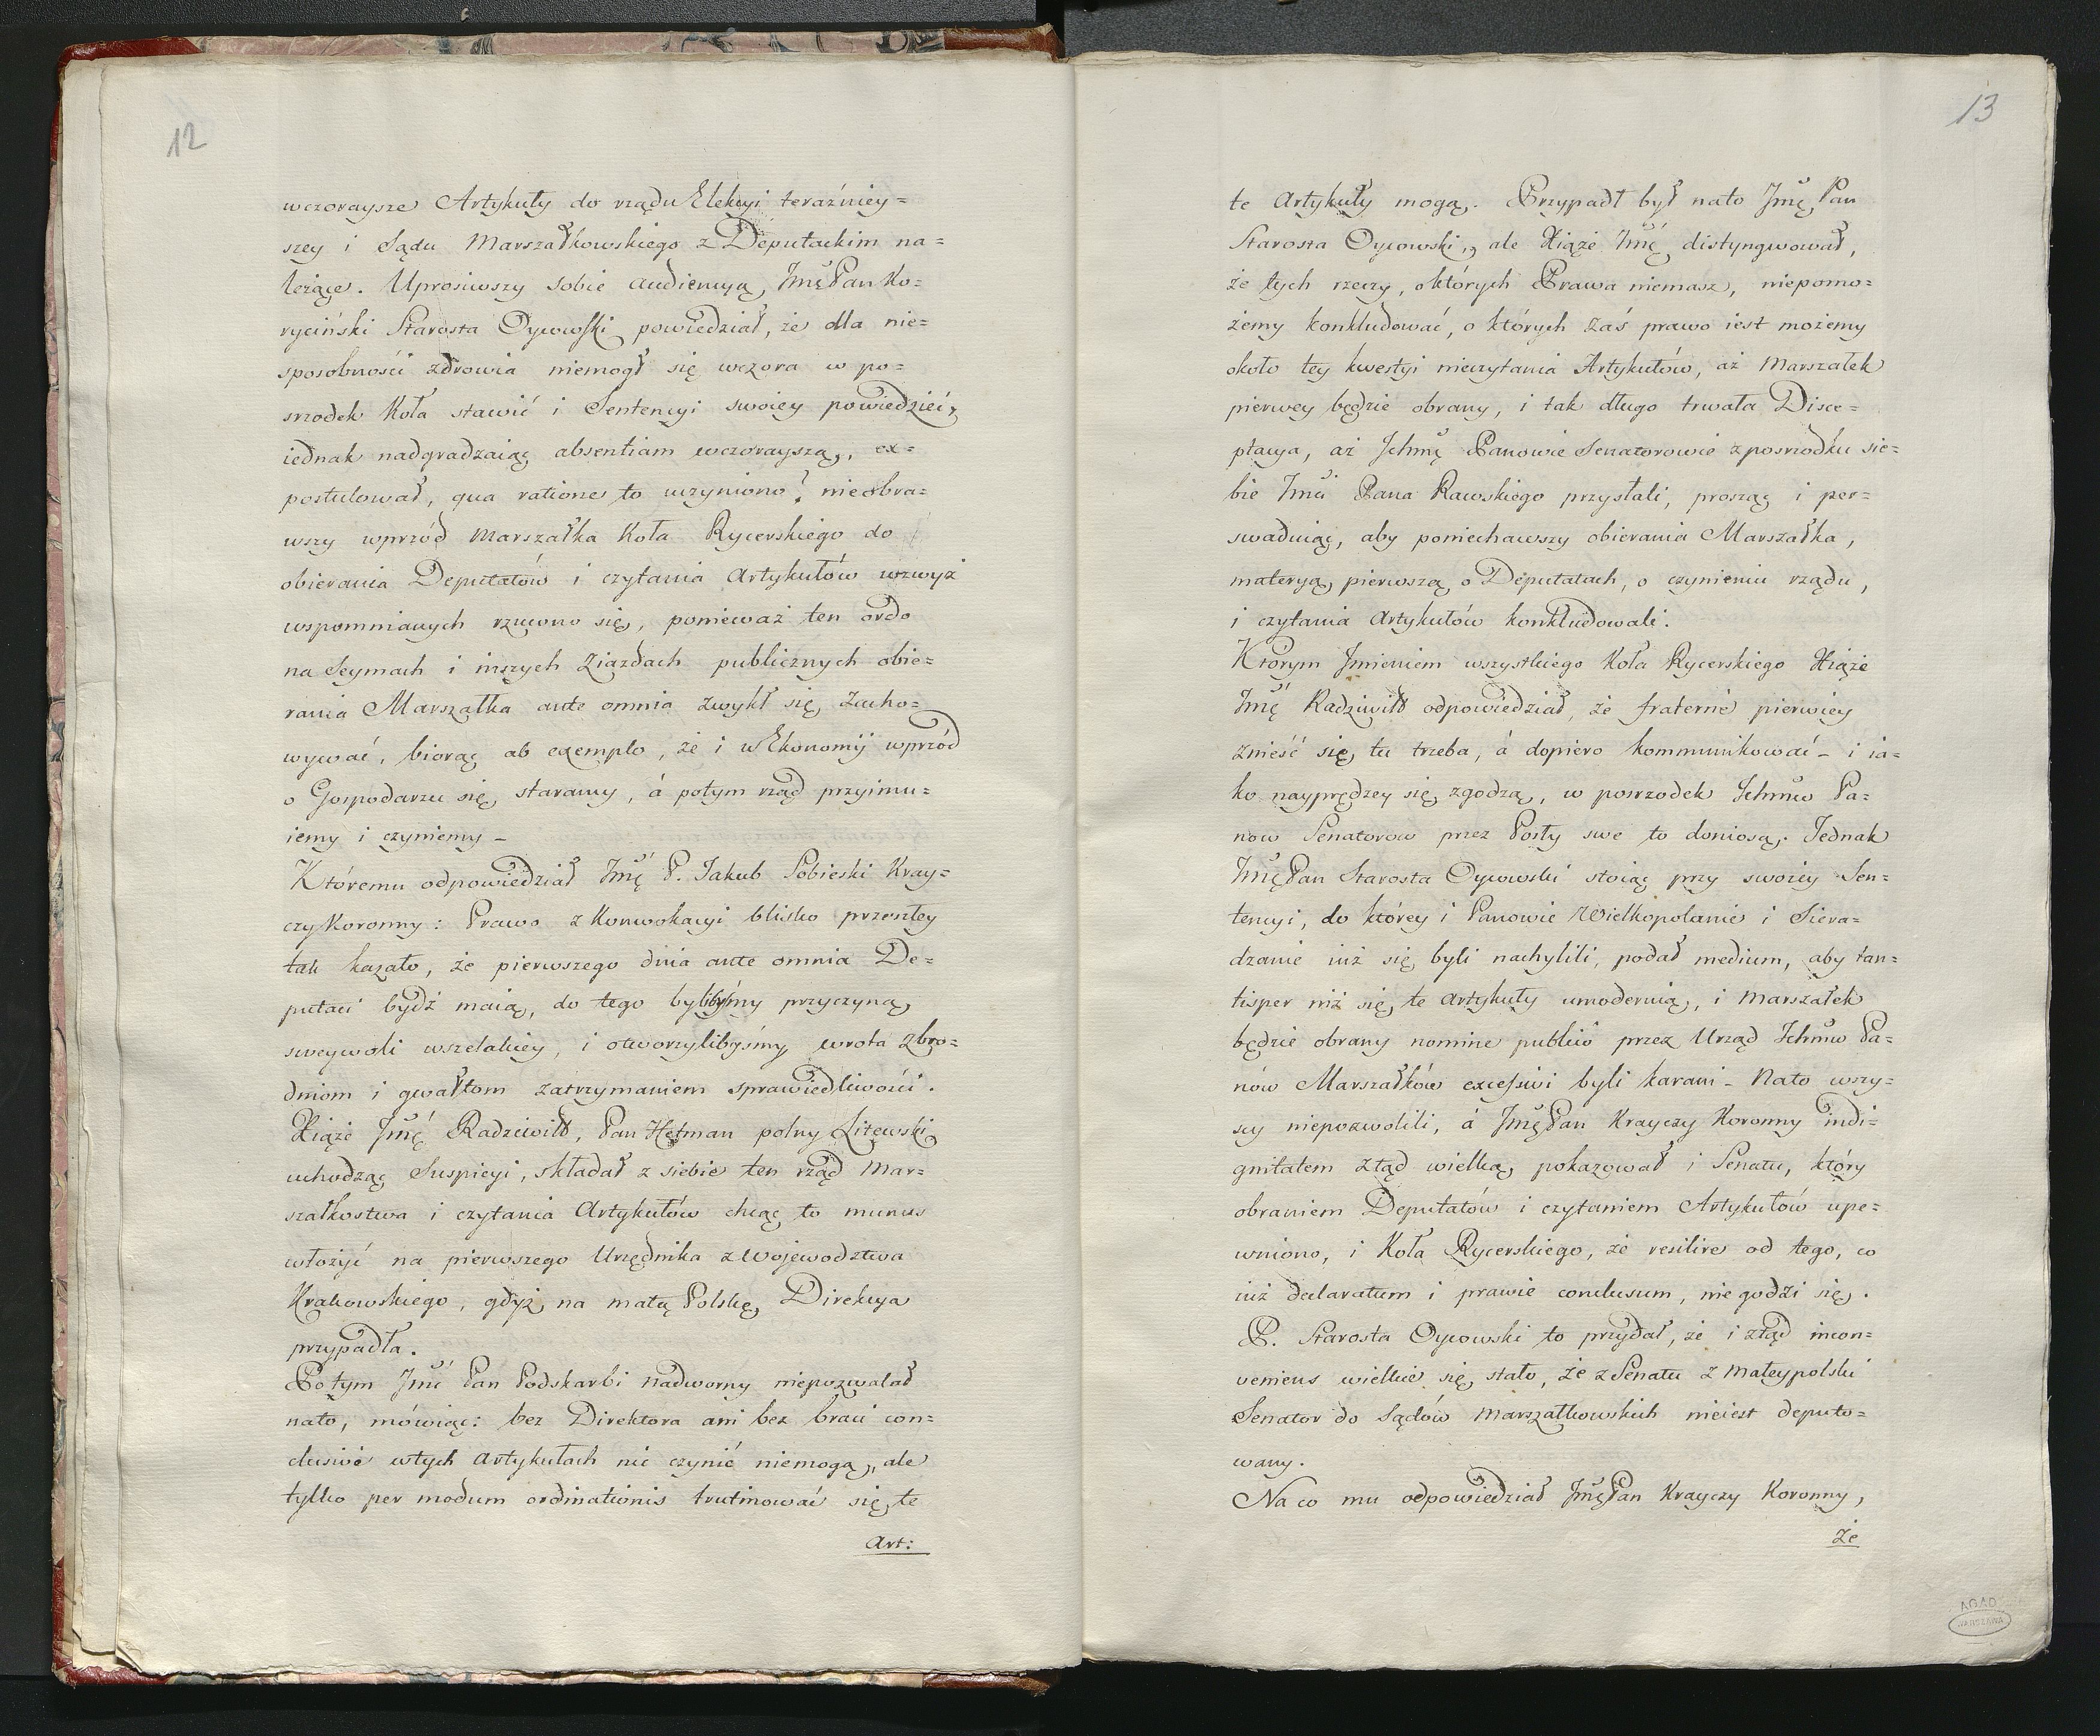 12
wczoraysze Artykuły do rządu Elekcyi teraźniey=
szey i Sądu Marszałkowskiego z Deputackim na=
leżące. Uprosiwszy sobie audiencyą, Jmę Pan Ko=
ryciński Starosta Oycowski powiedział, że dla nie=
sposobności zdrowia niemogł się wczora w po=
srzodek Koła stawić i Sentencyi swoiey powiedzieć,
iednak nadgradzaiąc absentiam wczorayszą, ex=
postulował, qua ratione to uczyniono? nieobra=
wszy wprzód Marszałka Koła Rycerskiego do
obierania Deputatów i czytania Artykułów wzwyż
wspomnianych rzucono się, ponieważ ten ordo
na Seymach i inszych Ziazdach publicznych obie=
rania Marszałka ante omnia zwykł się zacho=
wywać, biorąc ab exemplo, że i w Ekonomij wprzód
o Gospodarzu się staramy, á potym rząd przyimu=
iemy i czyniemy –
Któremu odpowiedział Jmć P. Jakub Sobieski Kray=
czy Koronny: Prawo z Konwokacyi blisko przeszłey
tak kazało, że pierwszego dnia ante omnia De=
putaci bydź maią, do tego bylibyśmy przyczyną
sweywoli wszelakiey, i otworzylibyśmy wrota zbro=
dniom i gwałtom zatrzymaniem sprawiedliwości.
Xiąże Jmć Radziwiłł, Pan Hetman polny Litewski
uchodząc Suspicyi, składał z siebie ten rząd Mar=
szałkostwa i czytania Artykułów chcąc to munus
włożyć na pierwszego Urzędnika z Województwa
Krakowskiego, gdyż na małą Polskę Direkcya
przypadła.
Potym Jmć Pan Podskarbi nadworny niepozwalał
nato, mówiąc: bez Direktora ani bez braci con=
clusivè wtych Artykułach nic czynić niemogą, ale
tylko per modum ordinationis trutinować się te
Art:
13
te Artykuły mogą. Przypadł był nato Jmę Pan
Starosta Oycowski, ale Xiąże Jmć distyngwował,
że tych rzeczy, októrych Prawa niemasz, niepomo=
żemy konkludować, o których zaś prawo iest możemy
około tey kwestyi nieczytania Artykułów, aż Marszałek
pierwey będzie obrany, i tak długo trwała Disce=
ptacya, aż Jchmę Panowie Senatorowie z posrzodku sie=
bie Jmći Pana Rawskiego przysłali, prosząc i per=
swaduiąc, aby poniechawszy obierania Marszałka,
materyą pierwszą o Deputatach, o czynieniu rządu,
i czytania Artykułów konkludowali.
Którym Jmieniem wszystkiego Koła Rycerskiego Xiąże
Jmć Radziwiłł odpowiedział, że fraternè pierwiey
znieść się tu trzeba, á dopiero kommunikować – i ia=
ko nayprędzey się zgodzą, w posrzodek Jchmw Pa=
now Senatorow przez Posły swe to doniosą. Jednak
Jmę Pan Starosta Oycowski stoiąc przy swoiey Sen=
tencyi, do którey i Panowie Wielkopolanie i Siera=
dzanie iuż się byli nachylili, podał medium, aby tan=
tisper niż się te Artykuły umoderuią, i Marszałek
będzie obrany nomine publico przez Urząd Jchmw Pa=
nów Marszałków excessivi byli karani – Nato wszy=
scy niepozwolili, á Jmę Pan Krayczy Koronny indi=
gnitatem ztąd wielką pokazował i Senatu, który
obraniem Deputatów i czytaniem Artykułów upe=
wniono, i Koła Rycerskiego, że resilire od tego, co
iuż declaratum i prawie conclusum, nie godzi się.
P. Starosta Oycowski to przydał, że i ztąd incon=
veniens wielkie się stało, że z Senatu z Małeypolski
Senator do Sądów Marszałkowskich nieiest deputo=
wany.
Na co mu odpowiedział Jmę Pan Krayczy Koronny,
że
AGAD
WARSZAWA